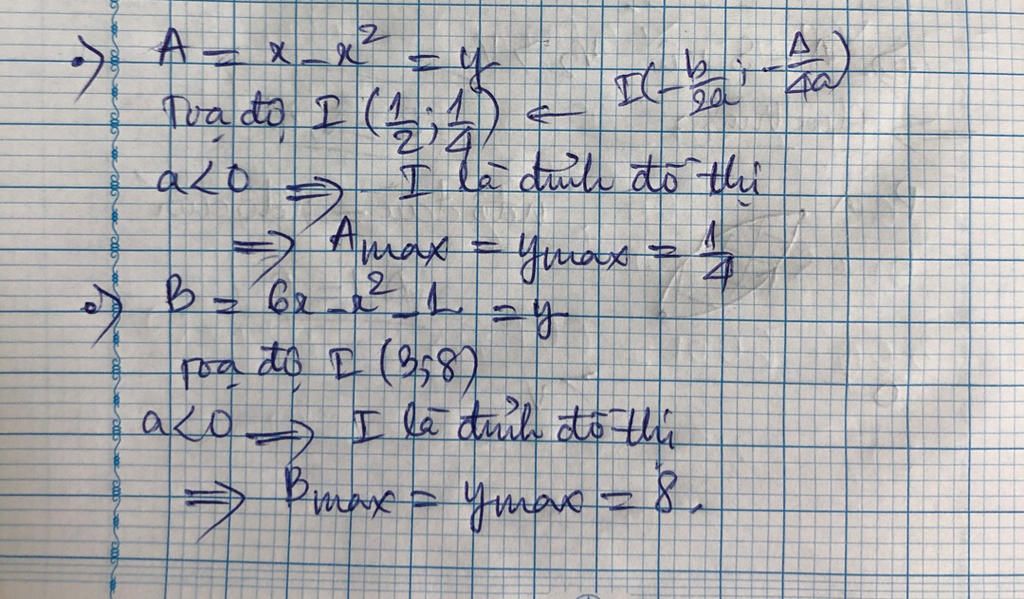 •) A = x - x² = y
Toạ độ I (1/2; 1/4) ← I(-b/2a; -Δ/4a)
a<0 ⇒ I là đỉnh đồ thị
⇒ Amax = ymax = 1/4
•) B = 6x - x² - 1 = y
Toạ độ I (3;8)
a<0 ⇒ I là đỉnh đồ thị
⇒ Bmax = ymax = 8.